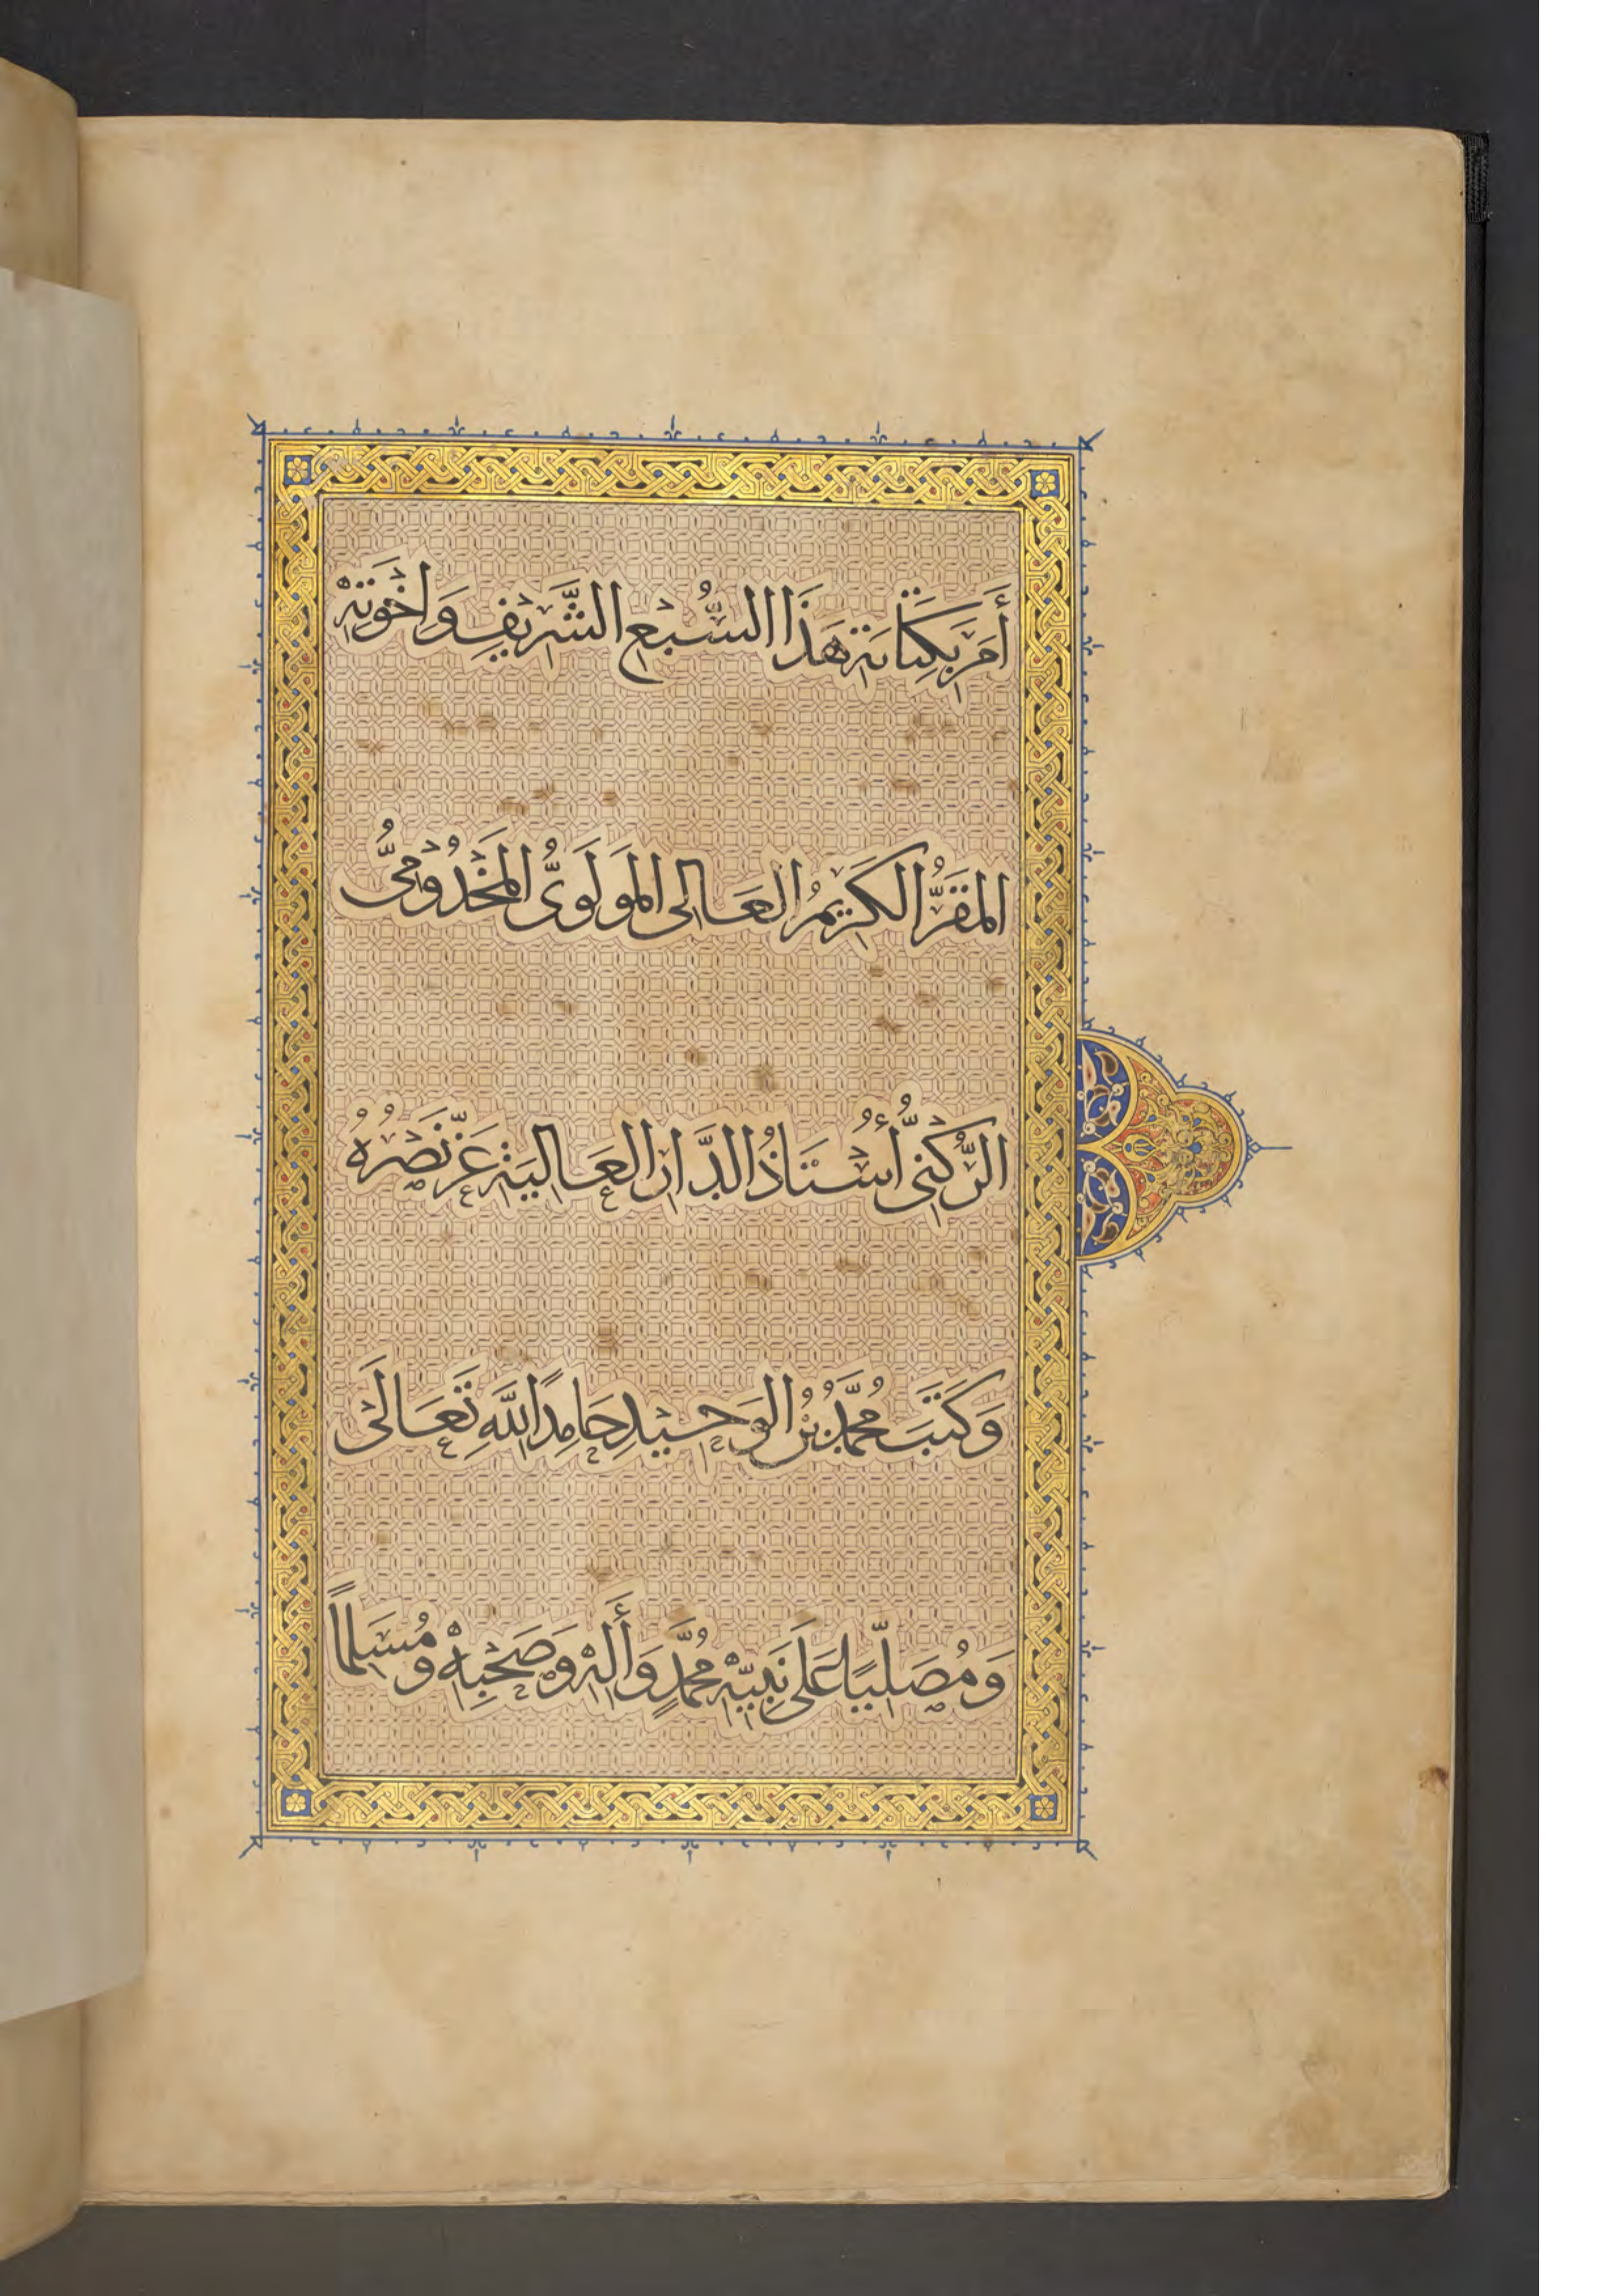 أَمَرَ بِكِتَابَةِ هَذَا السُّبْعِ الشَّرِيفِ وَاخْوَتِهْ
المَقَرُّ الكَرِيمُ العَالى المَولَوىُّ المَخْدُومىُّ
الرُّكْنىُّ أُسْتَاذُ الدَّارِ العَاليَةِ عَزَّ نَصْرُهُ
وَكَتَبَ مُحَمَّدُ بْنُ الوَحِيْدِ حَامِدًا اللَّهِ تَعَالَىْ
وَمُصَلِّيًا عَلَى نَبِيِّهْ مُحَمَّدٍ وَأَلِهْ وَصَحْبِهْ وَمُسَلِماً